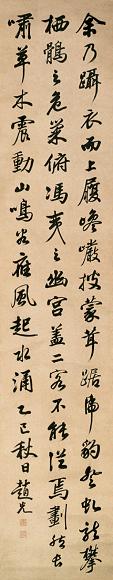 余乃躡衣而上履巉巖披蒙茸踞虎豹登虬龍攀
栖鶻之危巢俯馮夷之幽宮蓋二客不能從焉劃然長
嘯草木震動山鳴谷應風起水涌 乙巳秋日趙光